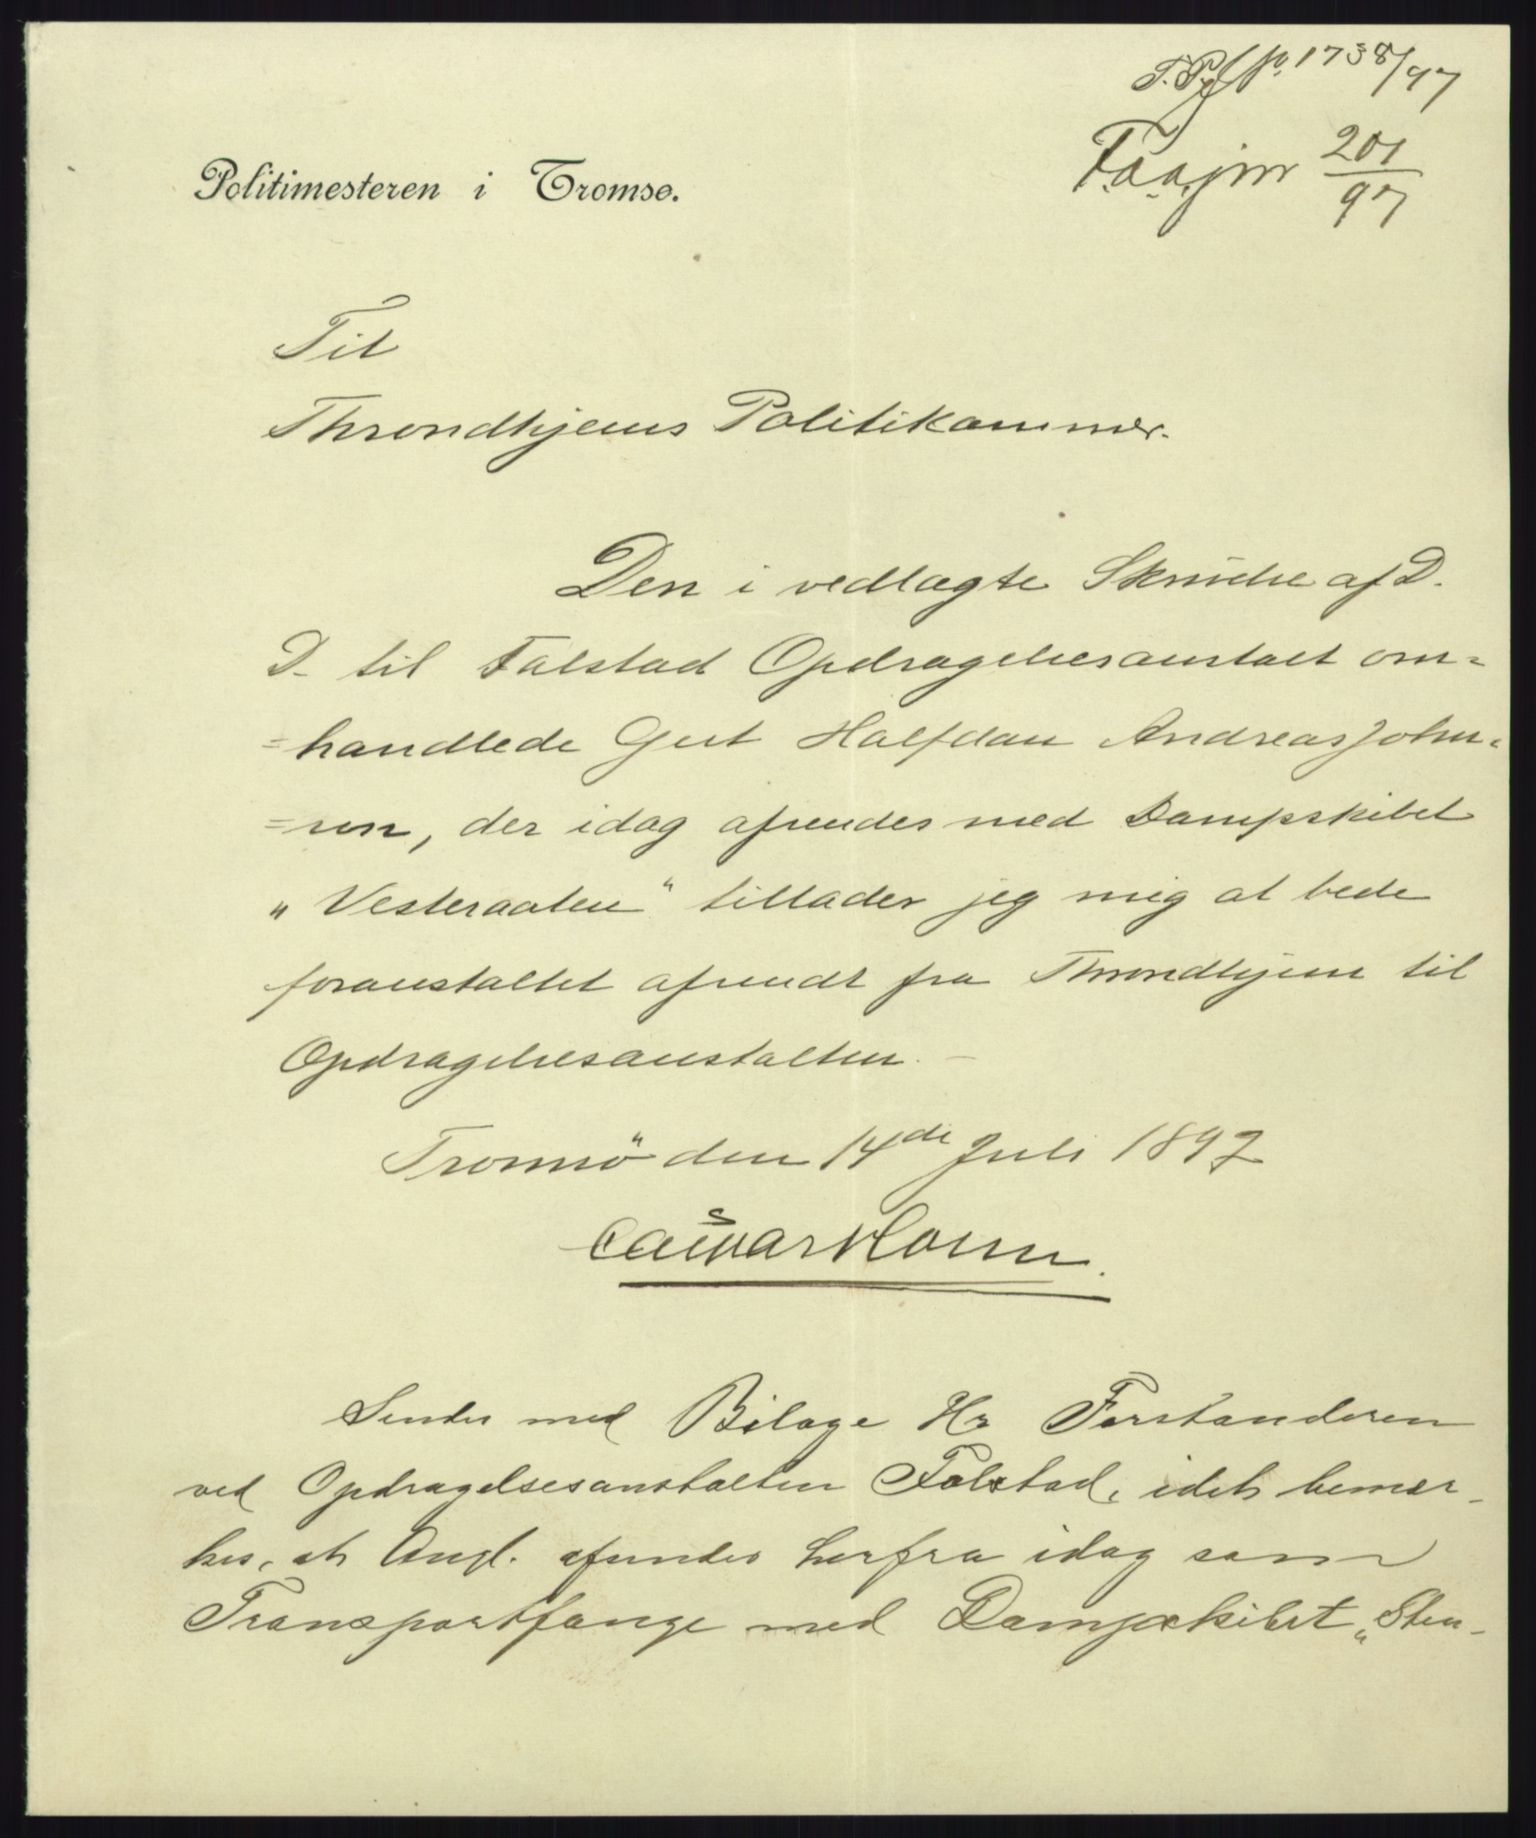 T. P. jr. 1738/97
F. o. a. jnr 201/97
Politimesteren i Tromsø.
Til
Throndhjems Politikammer.
Den i vedlagte Skrivelse af D.
D. til Falstad Opdragelsesanstalt om=
=handlede Gut Halfdan Andreas John=
=sen, der idag afsendes med Dampskibet
„Vesteraalen“ tillader jeg mig at bede
foranstaltet afsendt fra Throndhjem til
Opdragelsesanstalten. —
Tromsö den 14de Juli 1897
Sendes med Bilage Hr Forstanderen
ved Opdragelsesanstalten Falstad, idet bemær-
kes, at Angl. afsendes herfra idag som
Transportfange med Dampskibet „Sten-